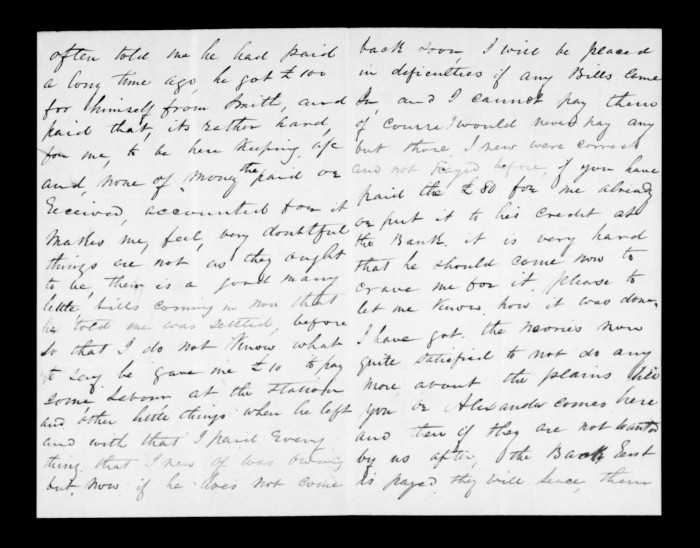 often told me he had paid
a long time ago, he got £100
for himself from Smith, and
paid that, its rather hard,
for me, to be here keeping a/c
and, none of money the paid or
Received, accounted for it
Makes me, feel, very doubtful
things are not as they ought
to be, their is a good many
little bills coming in now that
he told me was settled, before
so that I do not know what
to say he gave me £10 to pay
some Labour at the Station
and other little things when he left
and with that I paid Every
thing that I new of was owing
but, now if he does not come
back soon, I will be placed
in dificulties if any Bills come
In, and I cannot pay them
of course I would never pay any
but those, I new were correct
and not payed before, if you have
paid the £80 for me already
or put it to his credit at
the Bank. it is very hard
that he should come now to
crave me for it. please to
let me know how it was done.
I have got the maories now
quite satisfied to not do any
more about the plains till
you or Alexander comes here
and then if they are not wanted
by us after, the Back Rent
is payed they will lease, them